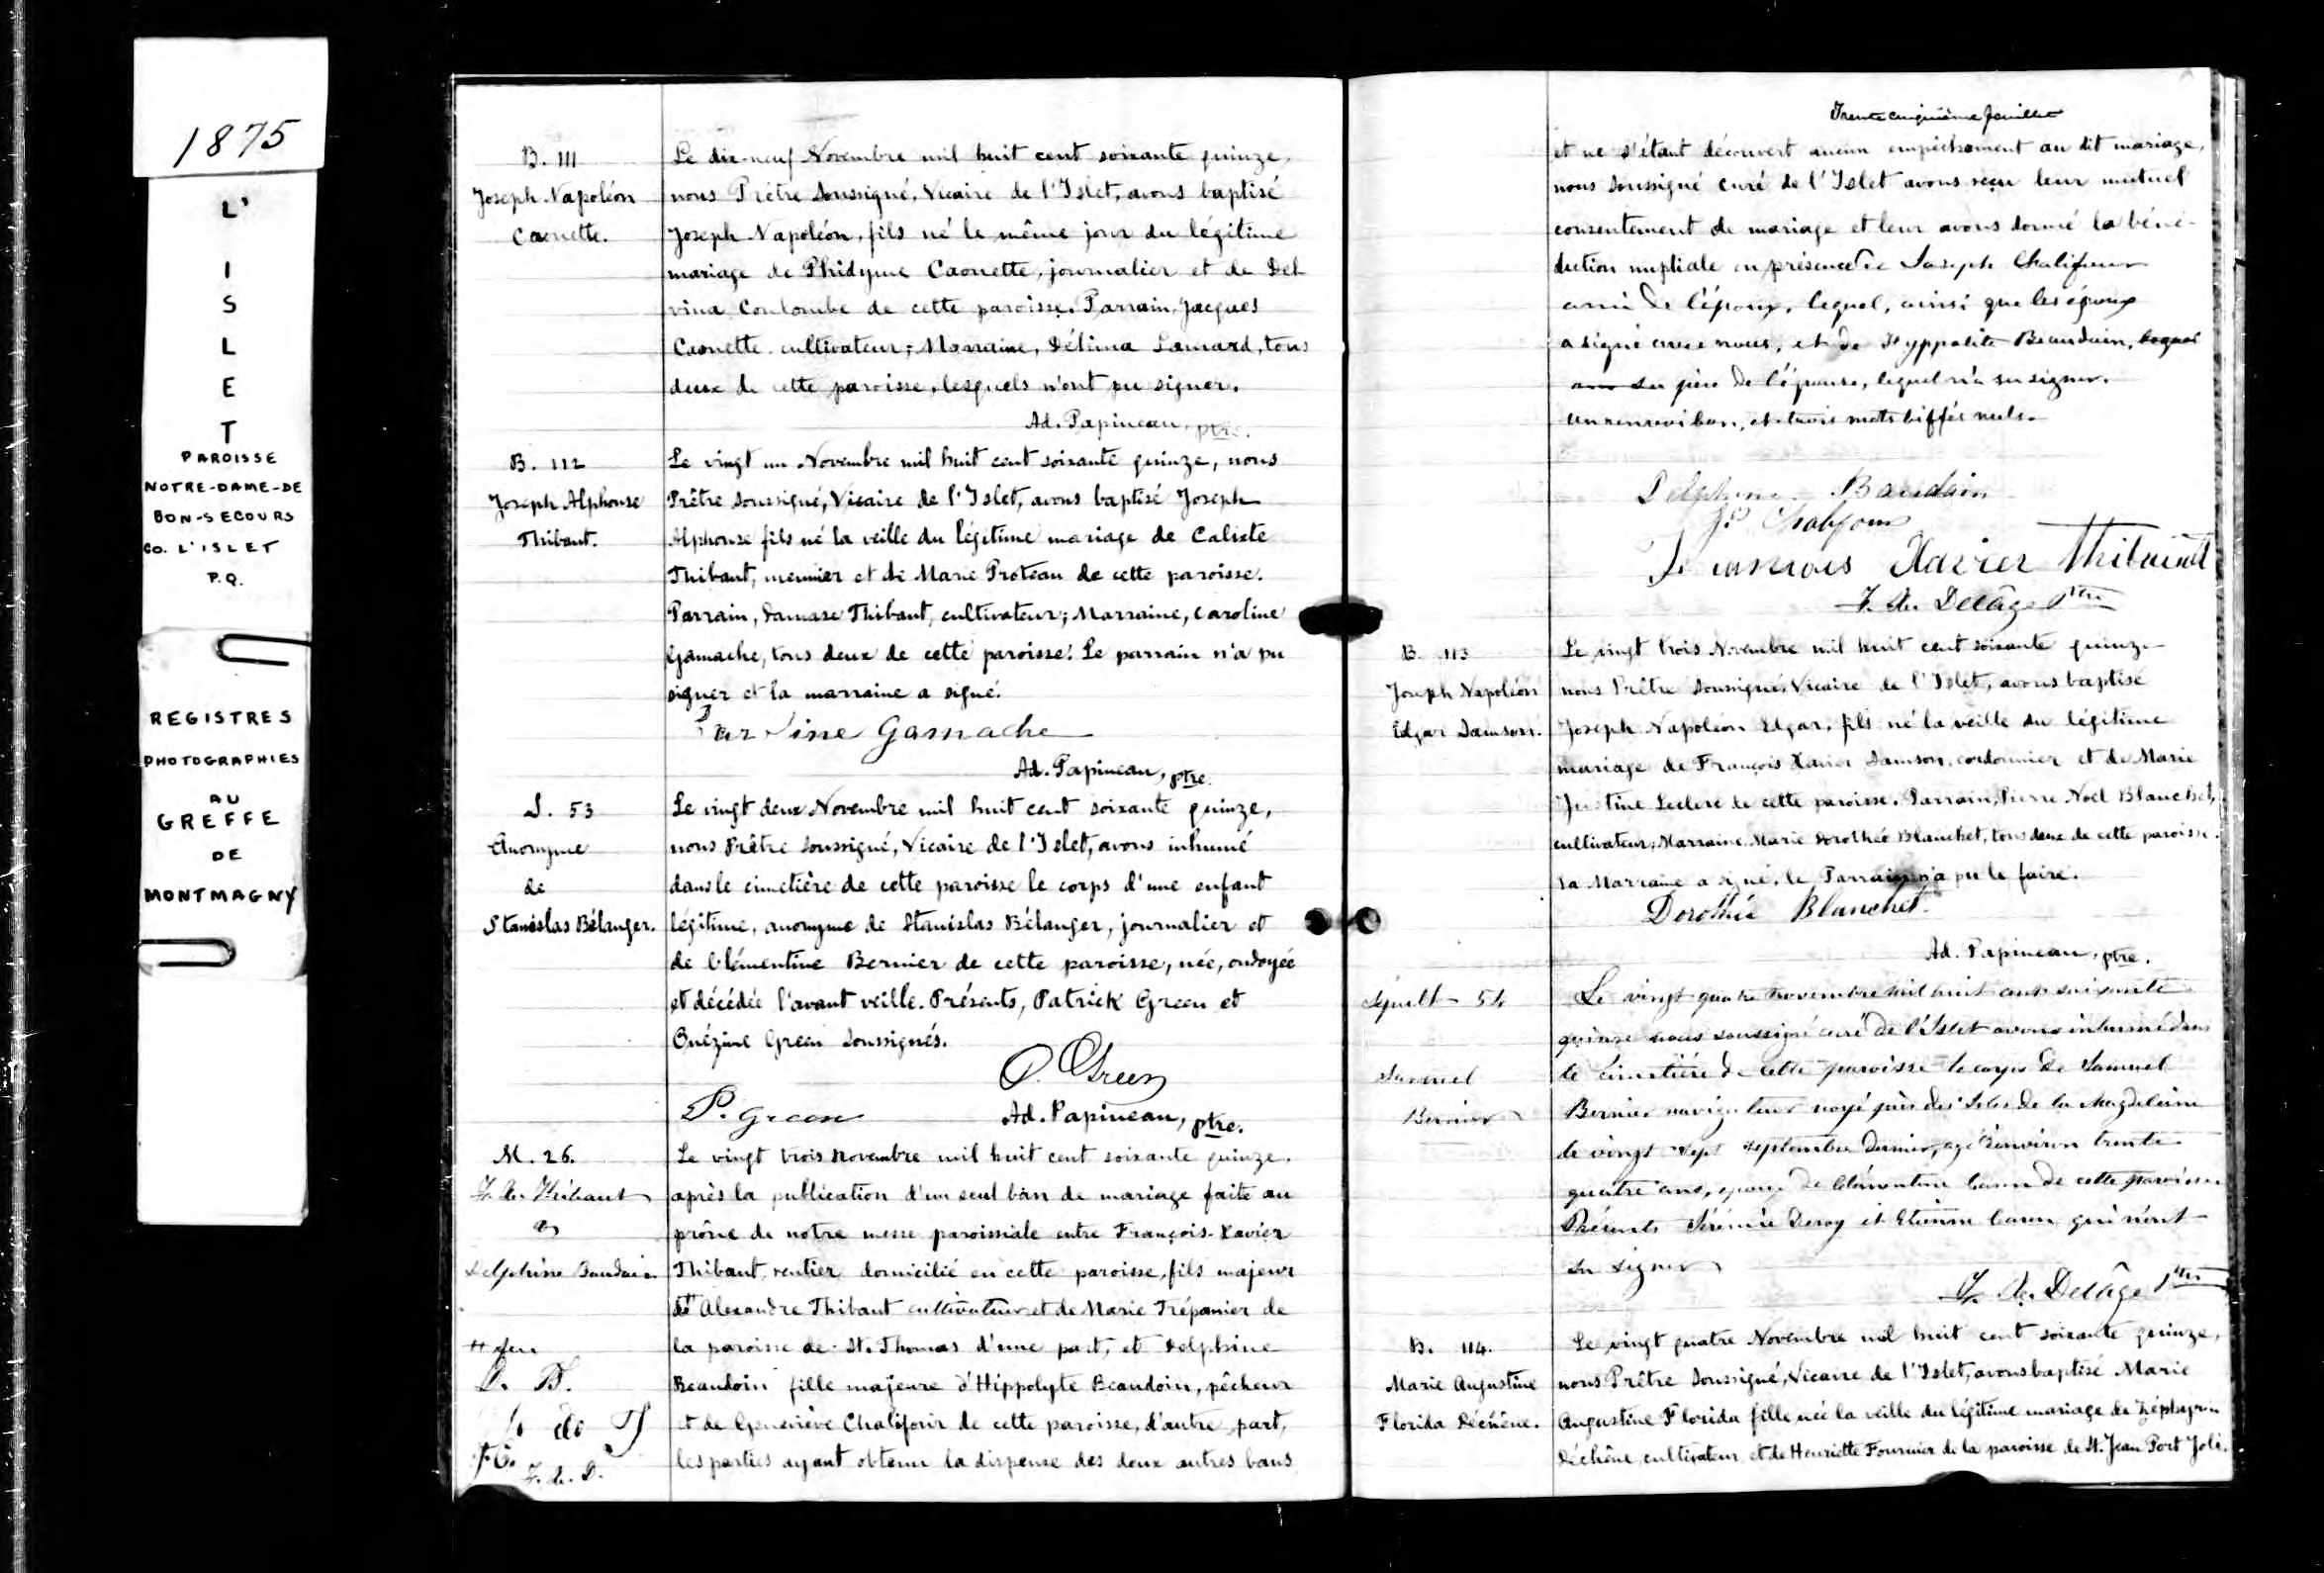 1875
L'
I
S
L
E
T
PAROISSE
NOTRE-DAME-DE
BON-SECOURS
CO. L'ISLET
P.Q.
REGISTRES
PHOTOGRAPHIES
AU
GREFFE
DE
MONTMAGNY
B. 111
Joseph Napoléon
Caouette.
Le dix-neuf Novembre mil huit cent soixante quinze,
nous Prêtre soussigné, Vicaire de l'Islet, avons baptisé
Joseph Napoléon, fils né le même jour du légitime
mariage de Phidyme Caouette, journalier et de Del
vina Coulombe de cette paroisse. Parrain, Jacques
Caouette cultivateur; Marraine, Délima Lamard, tous
deux de cette paroisse, lesquels n'ont pu signer.
Ad. Papineau, ptre.
B. 112
Joseph Alphonse
Thibaut.
Le vingt un Novembre mil huit cent soixante quinze, nous
Prêtre soussigné, Vicaire de l'Islet, avons baptisé Joseph
Alphonse fils né la veille du légitime mariage de Calixte
Thibaut, meunier et de Marie Proteau de cette paroisse.
Parrain, Damase Thibaut, cultivateur; Marraine, Caroline
Gamache, tous deux de cette paroisse. Le parrain n'a pu
signer et la marraine a signé.
Gamache
Ad. Papineau, ptre.
S. 53
Anonyme
de
Stanislas Bélanger.
Le vingt deux Novembre mil huit cent soixante quinze,
nous Prêtre soussigné, Vicaire de l'Islet, avons inhumé
dans le cimetière de cette paroisse le corps d'une enfant
légitime, anonyme de Stanislas Bélanger, journalier et
de Clémentine Bernier de cette paroisse, née, ondoyée
et décédée l'avant veille. Présents, Patrick Green et
Onézime Green soussignés.
O. Green
P. Green
Ad. Papineau, ptre.
M. 26.
F. X. Thibaut
&
Delphine Baudoin
Le vingt trois novembre mil huit cent soixante quinze,
après la publication d'un seul ban de mariage faite au
prône de notre messe paroissiale entre François-Xavier
Thibaut, rentier domicilié en cette paroisse, fils majeur
de Alexandre Thibaut cultivateur et de Marie Trépanier de
la paroisse de St. Thomas d'une part, et Delphine
Beaudoin fille majeure d'Hippolyte Beaudoin, pêcheur
et de Geneviève Chalifour de cette paroisse, d'autre part,
les parties ayant obtenu la dispense des deux autres bans
# feu
D. B.
F. X. D.
Trente cinquième feuillet
et ne s'étant découvert aucun empêchement au dit mariage,
nous soussigné curé de l'Islet avons reçu leur mutuel
consentement de mariage et leur avons donné la béné-
diction nuptiale en présence de Joseph Chalifour
ami de l'époux, lequel, ainsi que les époux
a signé avec nous, et de Hyppolite Beaudoin, lequel
père de l'épouse, lequel n'a su signer.
Un renvoi bon, et trois mots biffés nuls.
Delphine Baudoin
Js Chalifour
François Xavier Thibault
F. X. Delâge Ptre
B. 113
Joseph Napoléon
Edgar Samson.
Le vingt trois Novembre mil huit cent soixante quinze
nous Prêtre soussigné, Vicaire de l'Islet, avons baptisé
Joseph Napoléon Edgar, fils né la veille du légitime
mariage de François Xavier Samson, cordonnier et de Marie
Justine Leclerc de cette paroisse. Parrain, Pierre Noël Blanchet,
cultivateur; Marraine Marie Dorothée Blanchet, tous deux de cette paroisse.
La Marraine a signé, le Parrain n'a pu le faire.
Dorothée Blanchet.
Ad. Papineau, ptre.
Sépult - 54
Samuel
Bernier
Le vingt quatre novembre mil huit cent soixante
quinze nous soussigné curé de l'Islet avons inhumé dans
le cimetière de cette paroisse le corps de Samuel
Bernier navigateur noyé près des Isles de la Magdeleine
le vingt sept septembre dernier, agé d'environ trente
quatre ans, époux de Clémentine Caron de cette paroisse
Présents Jérémie Deroy et Etienne Caron qui n'ont
su signer
F. X. Delâge Ptre
B. 114.
Marie Augustine
Florida Déchêne.
Le vingt quatre Novembre mil huit cent soixante quinze,
nous Prêtre soussigné, Vicaire de l'Islet, avons baptisé Marie
Augustine Florida fille née la veille du légitime mariage de Zéphyrin
Déchêne, cultivateur, et de Henriette Fournier de la paroisse de St. Jean Port Joli.